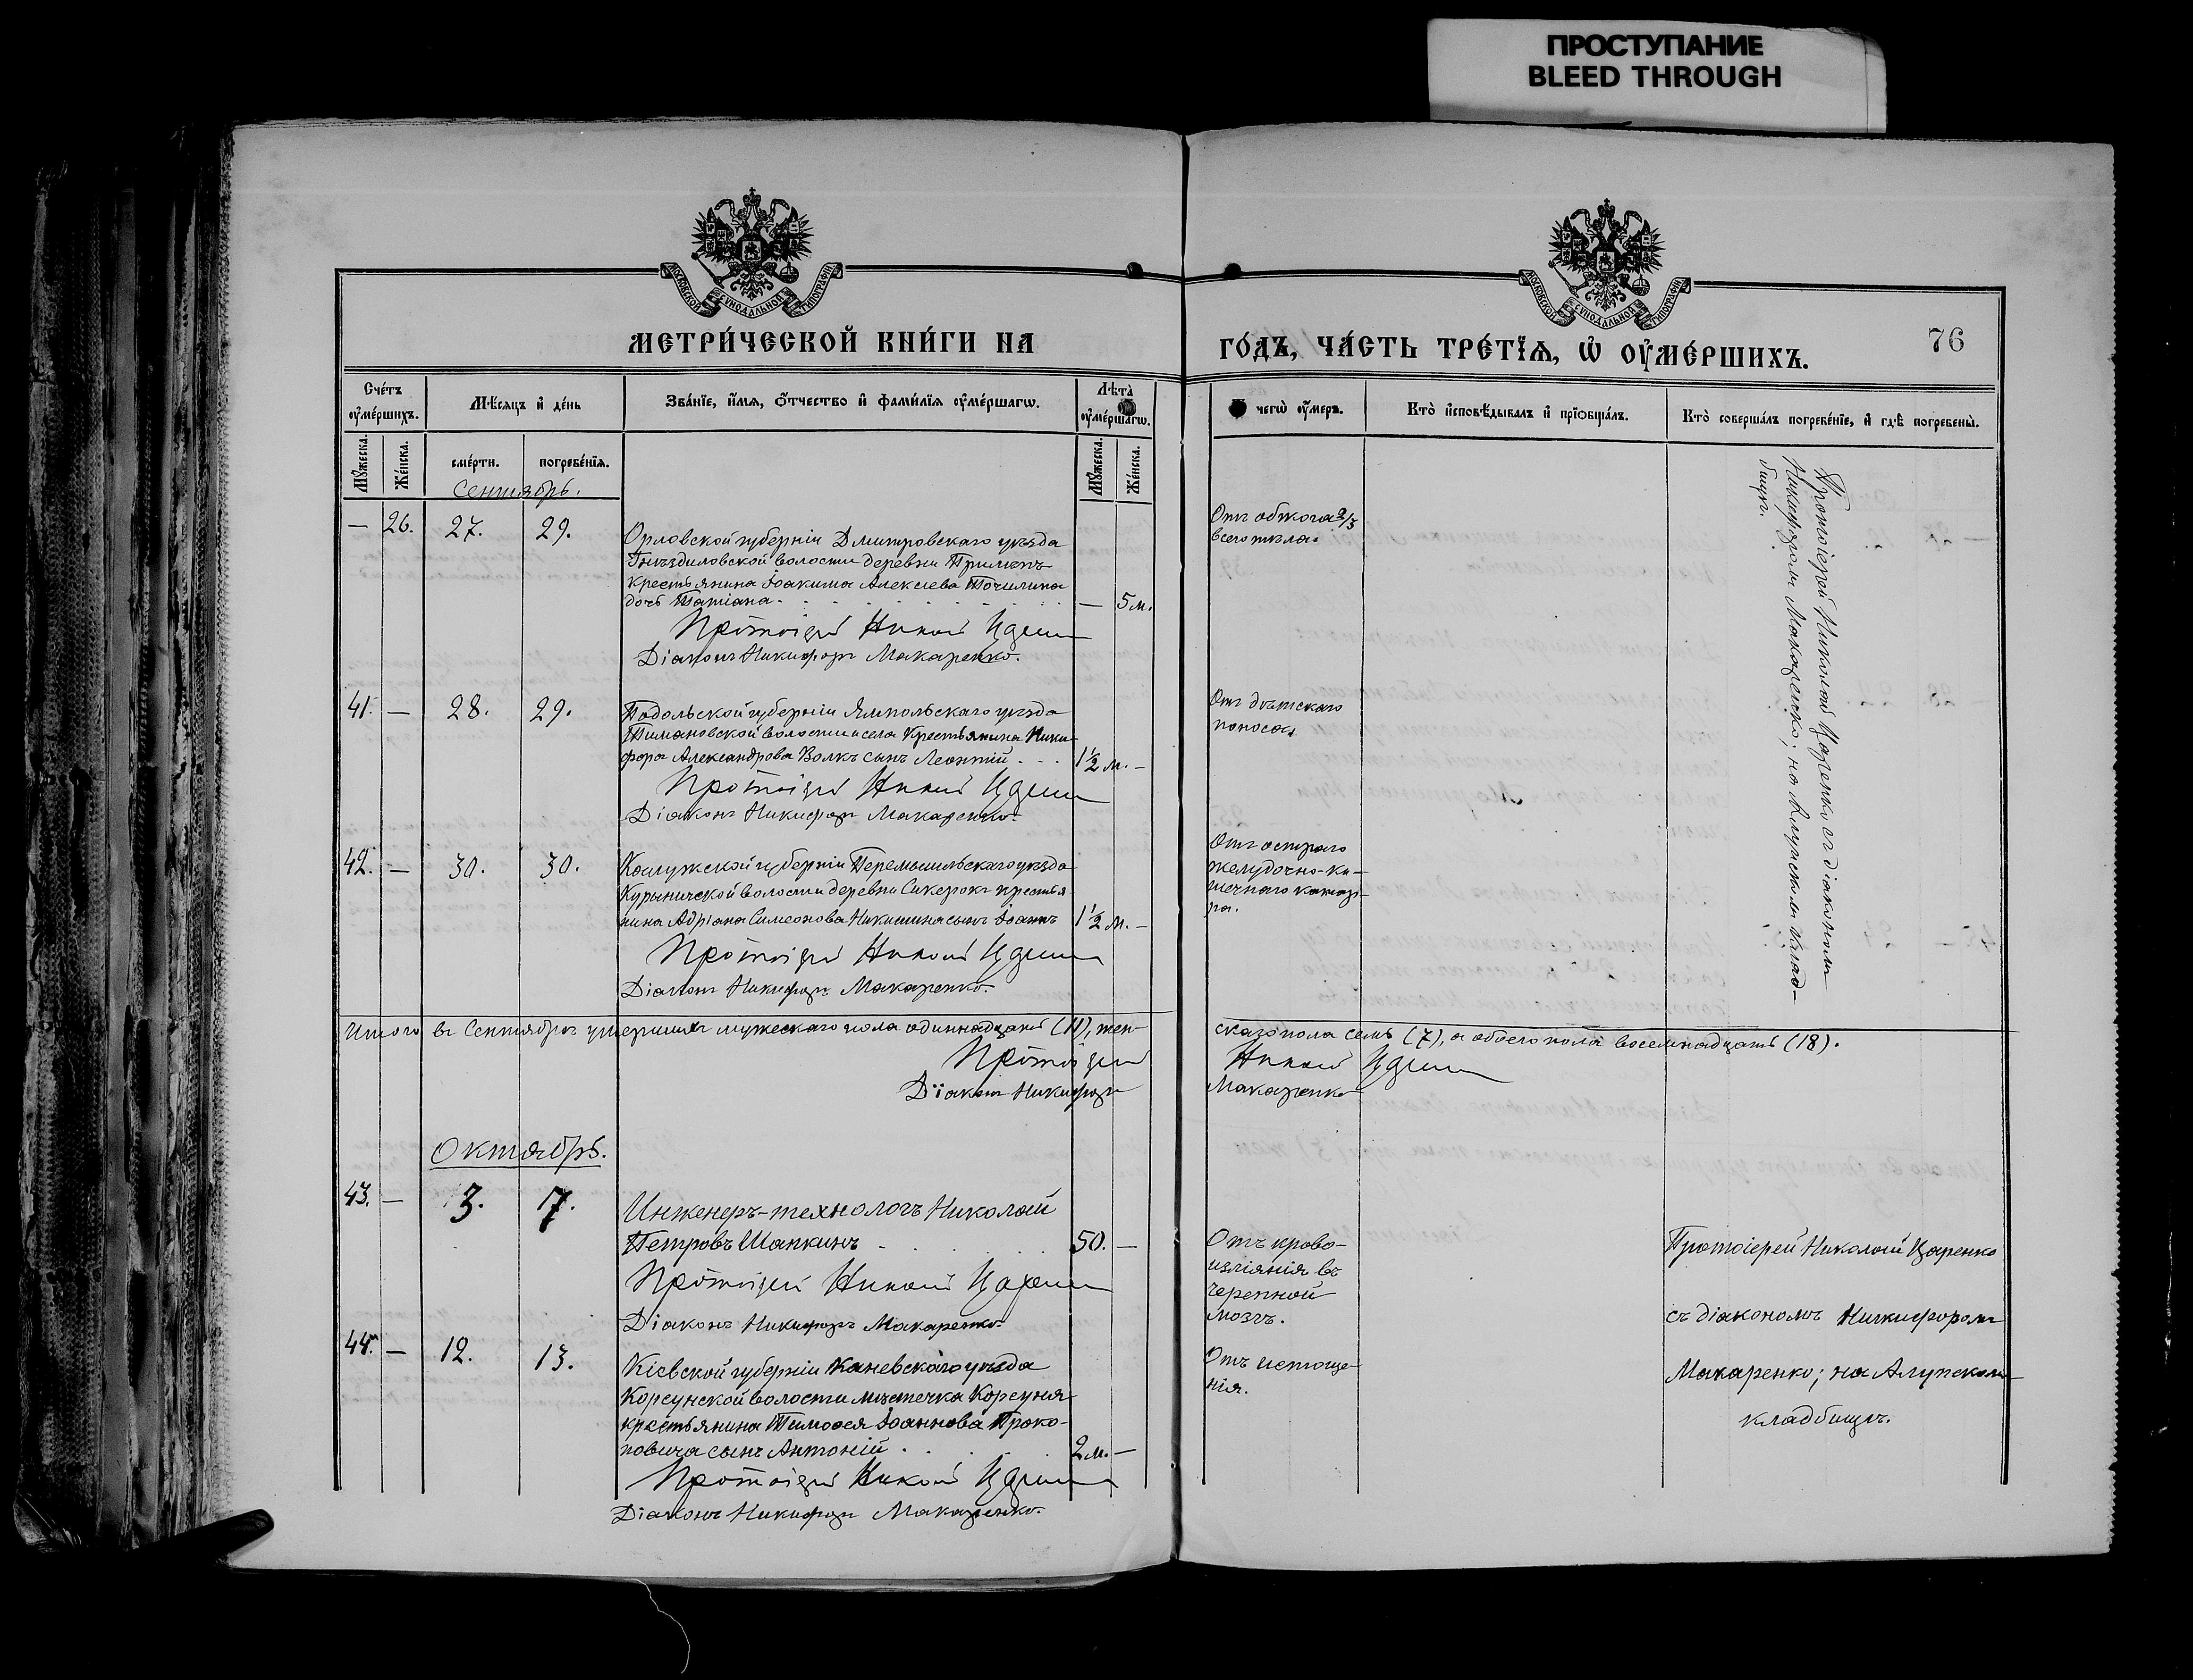 ПРОСТУПАНИЕ
BLEED THROUGH
МОСКОВСКОЙ СѴНОДАЛЬНОЙ ТИПОГРАФІИ
МОСКОВСКОЙ СѴНОДАЛЬНОЙ ТИПОГРАФІИ
МЕТРИ́ЧЕСКОЙ КНИ́ГИ НА
ГО́ДЪ, ЧА́СТЬ ТРЕ́ТЇѦ, Ѽ ОУ҆МЕ́РШИХЪ.
76
Счéтъ
ᲂу҆ме́ршихъ.
Мѣ́сяцъ и҆ де́нь
Зва́нїе, и҆́мѧ, ѻ҆́тчество и҆ фамилїѧ ᲂу҆ме́ршагѡ.
Лѣ́та
ᲂу҆ме́ршагѡ.
чегѡ̀ ᲂу҆́меръ.
Кто̀ и҆сповѣ́дывалъ и҆ прїѡбща́лъ.
Кто̀ соверша́лъ погребе́нїе, и҆ гдѣ̀ погребены̀.
Мꙋ́жеска.
Же́нска.
сме́рти.
погребе́нїѧ.
Мꙋ́жеска.
Же́нска.
Сентябрь.
— 26. 27. 29.
Орловской губерніи Дмитровскаго уѣзда
Гнѣздиловской волости деревни
крестьянина Іоакима Алексѣева Точилина
дочь Татіана. — 5 м.
Протоіерей Николай Царенко
Діаконъ Никифоръ Макаренко.
Отъ обжога 2/3
всего тѣла.
Протоіерей Николай Царенко съ діакономъ
Никифоромъ Макаренко; на Алупкскомъ клад-
бищѣ.
41. — 28. 29.
Подольской губерніи Ямпольскаго уѣзда
Тимановской волости и села крестьянина Ники-
фора Александрова Волкъ сынъ Леонтій. 1 1/2 м. —
Протоіерей Николай Царенко
Діаконъ Никифоръ Макаренко.
Отъ дѣтскаго
поноса.
42. — 30. 30.
Калужской губерніи Перемышльскаго уѣзда
волости деревни крестья
нина Адріана Симеонова Никишина сынъ Іоаннъ 1 1/2 м. —
Протоіерей Николай Царенко
Діаконъ Никифоръ Макаренко.
Отъ остраго
желудочно-ки-
шечнаго катар-
ра.
Итого въ Сентябрѣ умершихъ мужескаго пола одиннадцать (11), жен-
скаго пола семь (7), а обоего пола восемнадцать (18).
Протоіерей Николай Царенко
Діаконъ Никифоръ Макаренко
Октябрь.
43. — 3. 7.
Инженеръ-технологъ Николай
Петровъ Шапкинъ 50. —
Протоіерей Николай Царенко
Діаконъ Никифоръ Макаренко.
Отъ крово-
изліянія въ
черепной
мозгъ.
Протоіерей Николай Царенко
съ діакономъ Никифоромъ
Макаренко; на Алупкскомъ
кладбищѣ.
44. — 12. 13.
Кіевской губерніи Каневскаго уѣзда
Корсунской волости мѣстечка Корсуня
крестьянина Тимоѳея Іоаннова Проко-
повича сынъ Антоній. 2 м. —
Протоіерей Николай Царенко
Діаконъ Никифоръ Макаренко.
Отъ истоще-
нія.